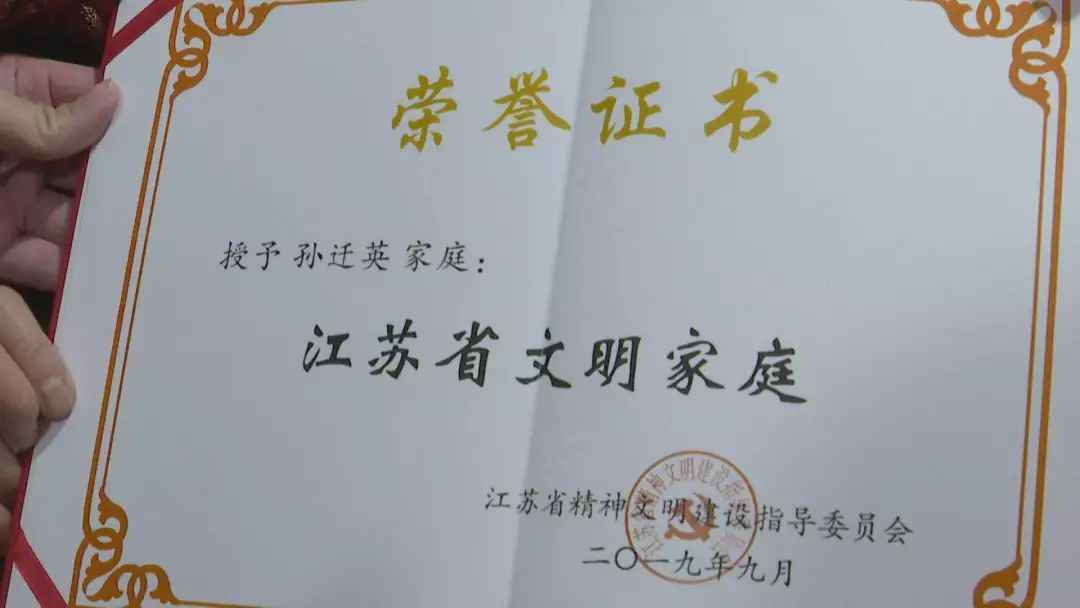 荣誉证书
授予 孙迁英 家庭：
江苏省文明家庭
江苏省精神文明建设指导委员会
二〇一九年九月